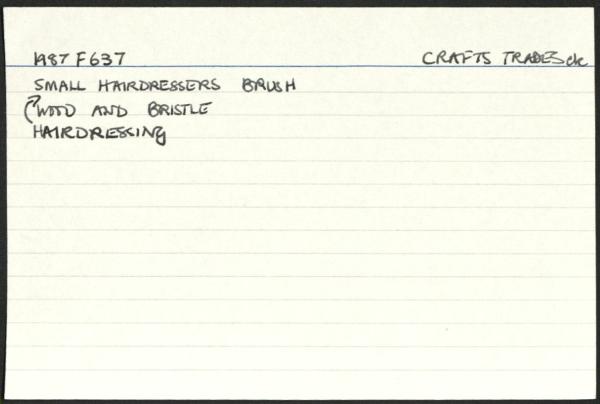 1987 F637 CRAFTS TRADES etc
SMALL HAIRDRESSERS BRUSH
WOOD AND BRISTLE
HAIRDRESSING